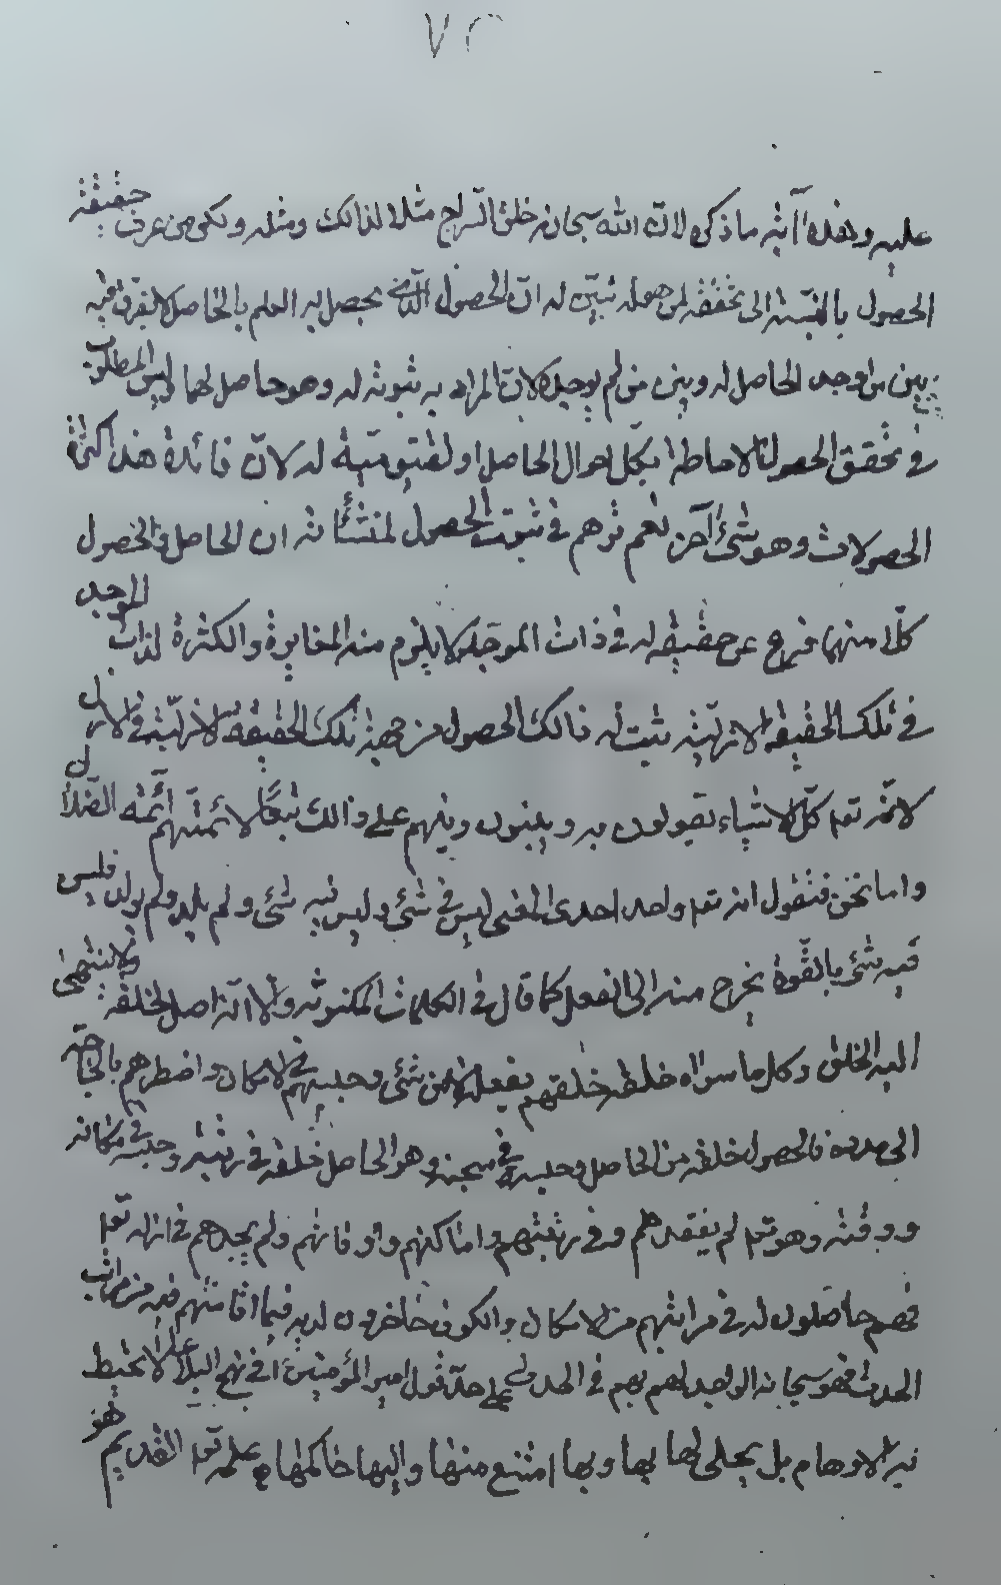 ٧٢
عليه وهذه آية ما ذكره لان الله سبحانه خلق السراج مثلا لذالك ومثله ولكن من عرف حقيقة
الحصول بالنسبة الى تحققه لمن هو له تبين له ان الحصول الذي يحصل به العلم بالحاصل لا يفرق فيه
بين من اوجد الحاصل له وبين من لم يوجده لان المراد به ثبوته له وهو حاصل لهما ليس المطلوب
في تحقق الحصول الاحاطة بكل احوال الحاصل او لقيوميته له لان فائدة هذا كثرة
الحصولات وهو شئ آخر نعم توهم في ثبوت الحصول لمنشأنه ان الحاصل والحصول
كلا منهما فرع عن حقيقة له في ذات الموجد لا يلزم منه المغايرة والكثرة لذات الموجد
في تلك الحقيقة الازلية يثبت له ذالك الحصول من جهة تلك الحقيقة الازلية في الازل
لانه تعم كل الاشياء يقولون به ويبنون دينهم على ذالك تبعا لائمتهم ائمة الضلال
واما نحن فنقول انه تعم واحد احدى المعنى ليس في شئ وليس فيه شئ ولم يلد ولم يولد فليس
فيه شئ بالقوة يخرج منه الى الفعل كما قال في الكلمات المكنونة والا انه اصل الخلقة ولا ينتهى
اليه الخلق وكل ما سواه خلقه خلقهم بفعله لا من شئ وحبسهم في الامكان واضطرهم بالحاجة
الى مدده فالحصول خلقه من الحاصل وحبسه في سجنه وهو الحاصل خلقه في رتبته وحبسه في مكانه
ووقته وهو تعم لم يفقدهم في رتبتهم واماكنهم واوقاتهم ولم يجدهم في ازله تعم
فهم حاصلون له في مراتبهم من الامكان والكون حاضرون لديه فيما اقامتهم فيه من مراتب
الحدث فهو سبحانه الواجد لهم بهم في الحدث على حد قول امير المؤمنين ٤ في نهج البلاغة لا تحيط
به الاوهام بل تجلى لها بها وبها امتنع منها واليها حاكمها م علمه تعم القديم هو